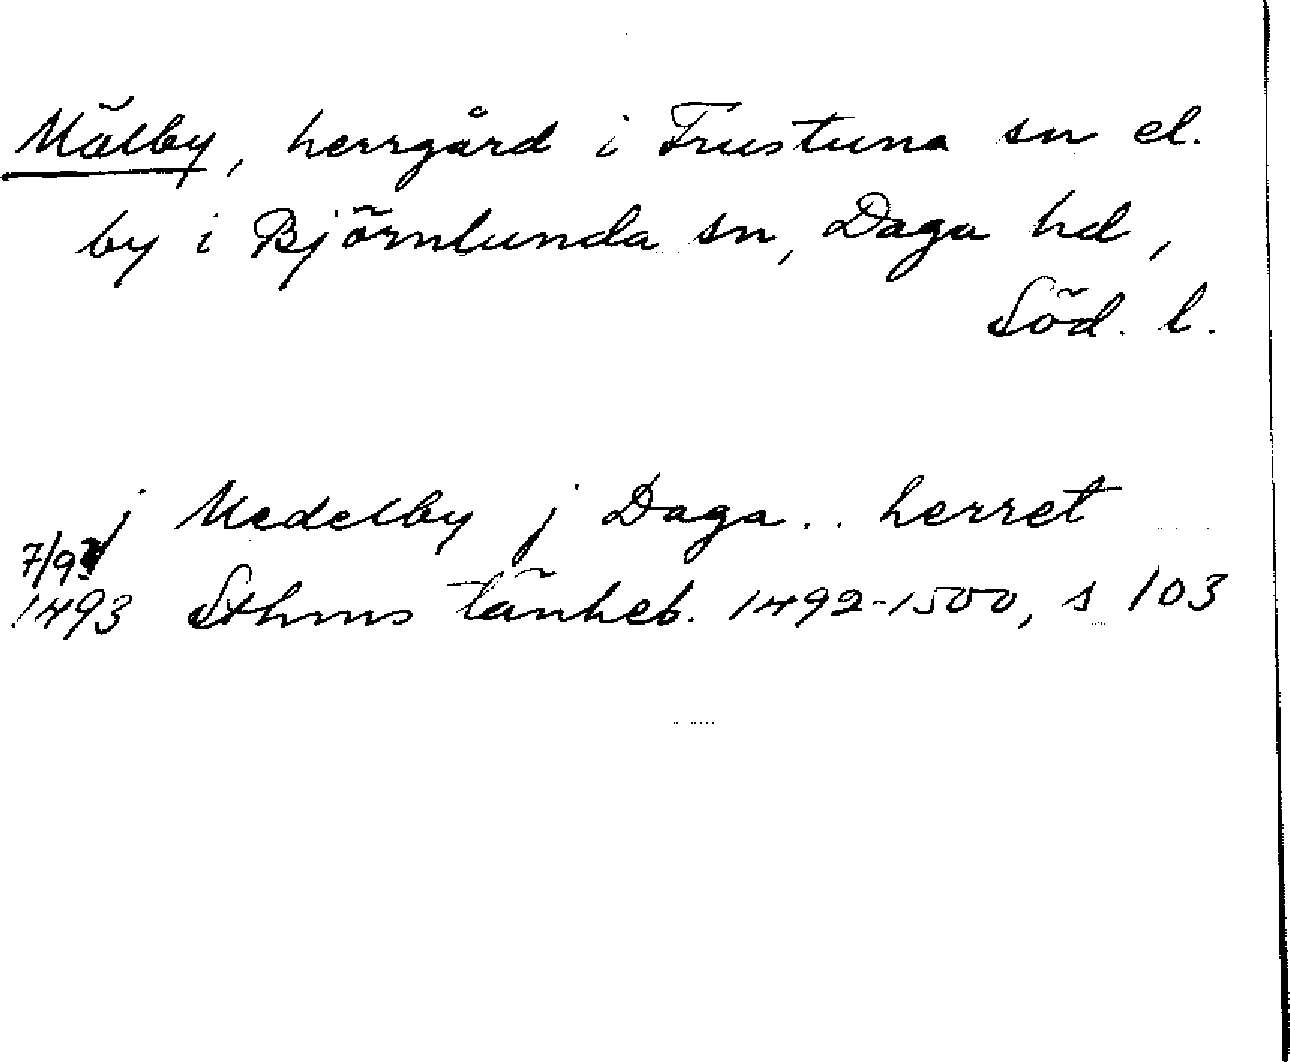 Mälby, herrgård i Frustuna sn el.
by i Björnlunda sn, Daga hd,
Söd. l.
j Medelby j Daga .. herret
7/9
1493 Sthms tänkeb. 1492-1500, s 103